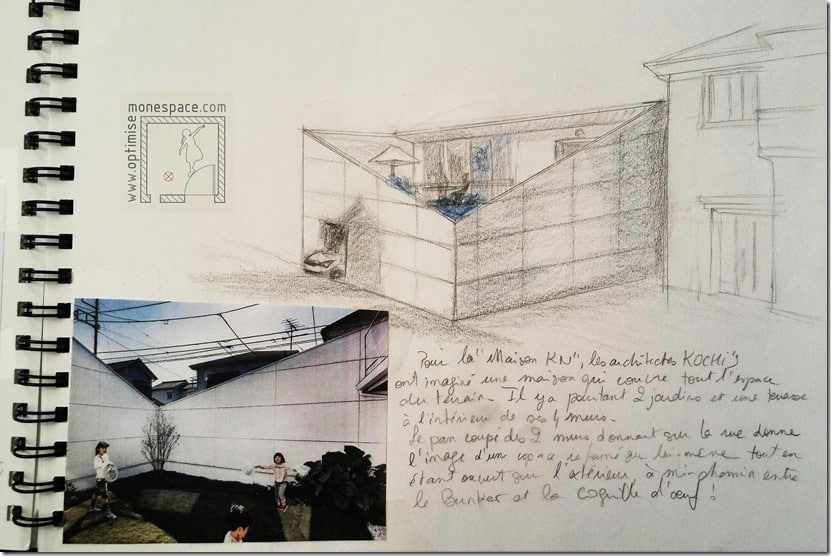 monespace.com
www.optimise
Pour la "Maison KN", les architectes KOCHI's
ont imaginé une maison qui couvre tout l'espace
du terrain. Il y a pourtant 2 jardins et une terrasse
à l'intérieur de ses 4 murs.
Le pan coupé des 2 murs donnant sur la rue donne
l'image d'un espace refermé sur lui-même tout en
étant ouvert sur l'extérieur, à mi-chemin entre
le Bunker et la coquille d'œuf